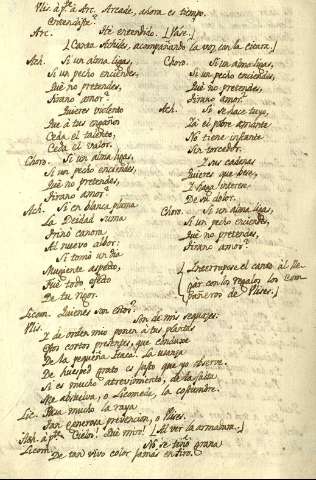 Ulis. á pte. á Arc. Arcade, ahora es tiempo.
Entendiste?
Arc. He entendido. [Vase.]
[Canta Achiles, acompañando la voz con la citara.]
Ach. Si un alma ligas,
Si un pecho enciendes,
Qué no pretendes,
Tirano amor?
Quieres violento
Que á tus engaños
Ceda el talento,
Ceda el valor.
Choro. Si un alma ligas,
Si un pecho enciendes,
Qué no pretendes,
Tirano amor?
Ach. Si en blanca pluma
La Deidad suma
Trinó canora
Al nuevo albor:
Si tomó un dia
Mugiente aspecto,
Fué todo efecto
De tu rigor.
Choro. Si un alma ligas,
Si un pecho enciendes,
Qué no pretendes,
Tirano amor?
Ach. Si se hace tuyo,
Ya el pobre amante
No tiene instante
Sin torcedor.
Y sus cadenas
Quieres que bese,
Y haga interese
De su dolor.
Choro. Si un alma ligas,
Si un pecho enciendes,
Qué no pretendes,
Tirano amor?
[Interrumpese el canto al lle-
gar con los regalos los com-
pañeros de Ulises.]
Licom. Quienes son estos?
Ulis. Son de mis sequazes:
Y de orden mio ponen á tus plantas
Esos cortos presentes, que conduxe
De la pequeña Itaca. La usanza
De huesped grato es justo que yo observe.
Si es mucho atrevimiento, de la falta
Me absuelva, o Licomede, la costumbre.
Lic. Pasa mucho la raya
Tan generosa prevencion, o Ulises.
Ach. á pte. Cielos! Qué miro! [Al ver la armadura.]
Licom. No se tiñó grana
De tan vivo color jamas en Tiro.